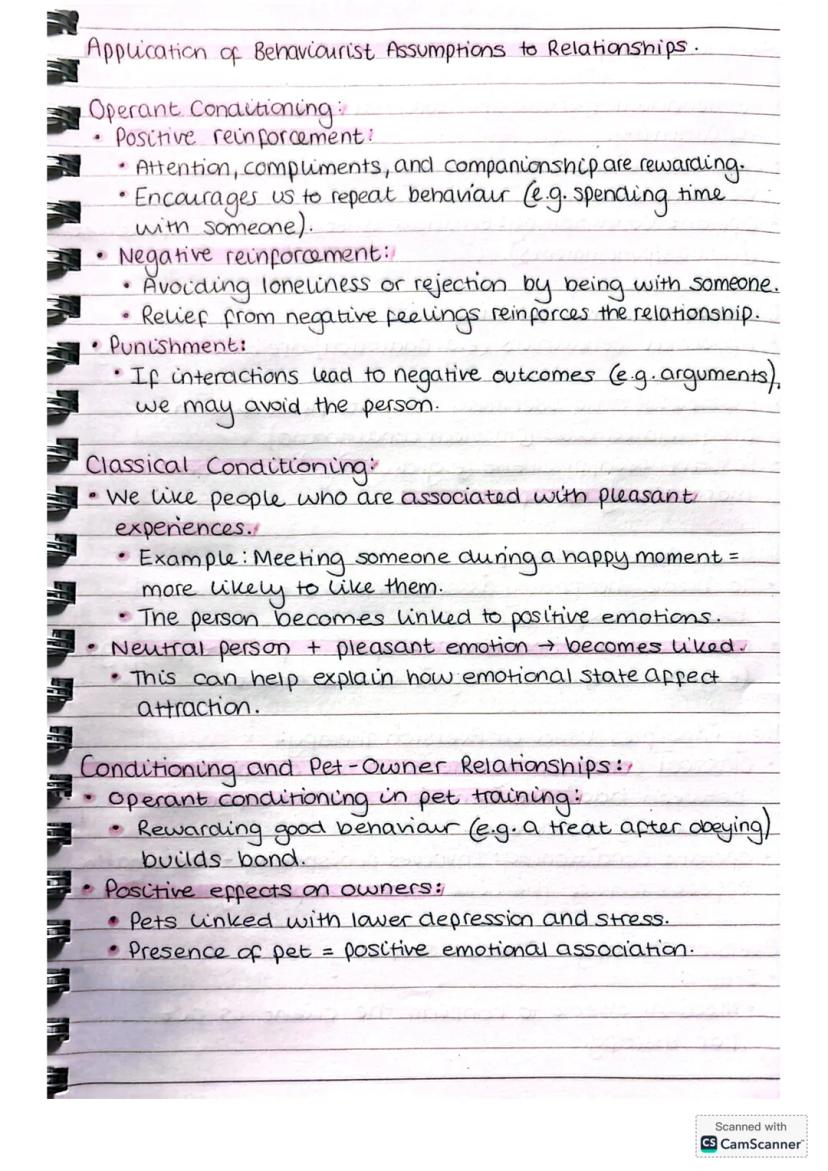 Application of Behaviourist Assumptions to Relationships.
Operant Conditioning:
• Positive reinforcement:
• Attention, compliments, and companionship are rewarding.
• Encourages us to repeat behaviour (e.g. spending time
with someone).
• Negative reinforcement:
• Avoiding loneliness or rejection by being with someone.
• Relief from negative feelings reinforces the relationship.
• Punishment:
• If interactions lead to negative outcomes (e.g. arguments),
we may avoid the person.
Classical Conditioning:
• We like people who are associated with pleasant
experiences.
• Example: Meeting someone during a happy moment =
more likely to like them.
• The person becomes linked to positive emotions.
• Neutral person + pleasant emotion → becomes liked.
• This can help explain how emotional state affect
attraction.
Conditioning and Pet-Owner Relationships:
• Operant conditioning in pet training:
• Rewarding good behaviour (e.g. a treat after obeying)
builds bond.
• Positive effects on owners:
• Pets linked with lower depression and stress.
• Presence of pet = positive emotional association.
Scanned with
CS CamScanner